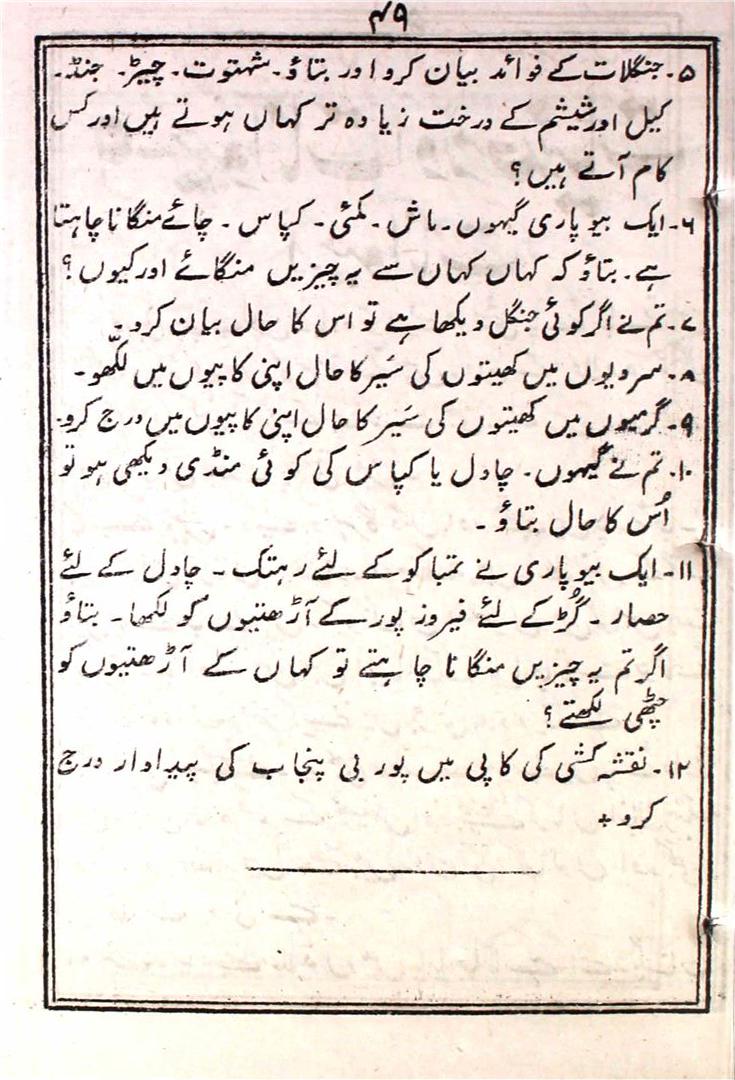 ۴۹
۵۔ جنگلات کے فوائد بیان کرو اور بتاؤ۔ شہتوت۔ چیڑ۔ جنڈ۔
کیل اور شیشم کے درخت زیادہ تر کہاں ہوتے ہیں اور کس
کام آتے ہیں؟
۶۔ ایک بیوپاری گیہوں۔ ماش۔ مکئی۔ کپاس۔ چائے منگانا چاہتا
ہے۔ بتاؤ کہ کہاں کہاں سے یہ چیزیں منگائے اور کیوں؟
۷۔ تم نے اگر کوئی جنگل دیکھا ہے تو اس کا حال بیان کرو۔
۸۔ سردیوں میں کھیتوں کی سَیر کا حال اپنی کاپیوں میں لکھّو۔
۹۔ گرمیوں میں کھیتوں کی سَیر کا حال اپنی کاپیوں میں درج کرو۔
۱۰۔ تم نے گیہوں۔ چاول یا کپاس کی کوئی منڈی دیکھی ہو تو
اُس کا حال بتاؤ۔
۱۱۔ ایک بیوپاری نے تمباکو کے لئے رہتک۔ چاول کے لئے
حصار۔ گُڑ کے لئے فیروز پور کے آڑھتیوں کو لکھا۔ بتاؤ
اگر تم یہ چیزیں منگانا چاہتے تو کہاں کے آڑھتیوں کو
چٹھی لکھتے؟
۱۲۔ نقشہ کشی کی کاپی میں پوربی پنجاب کی پیداوار درج
کرو+